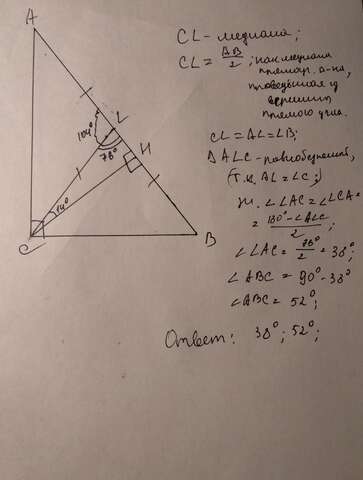 A
CL - медиана;
CL = AB/2; как медиана
прямоуг. д-ка,
проведённая из
вершины
прямого угла.
L
H
104°
76°
CL = AL = LB;
△ALC - равнобедренный,
(т.к. AL = LC;)
∠LAC = ∠LCA =
= 180° - ∠ALC / 2;
14°
C
B
∠LAC = 76°/2 = 38°;
∠ABC = 90° - 38°
∠ABC = 52°;
Ответ: 38°; 52°;